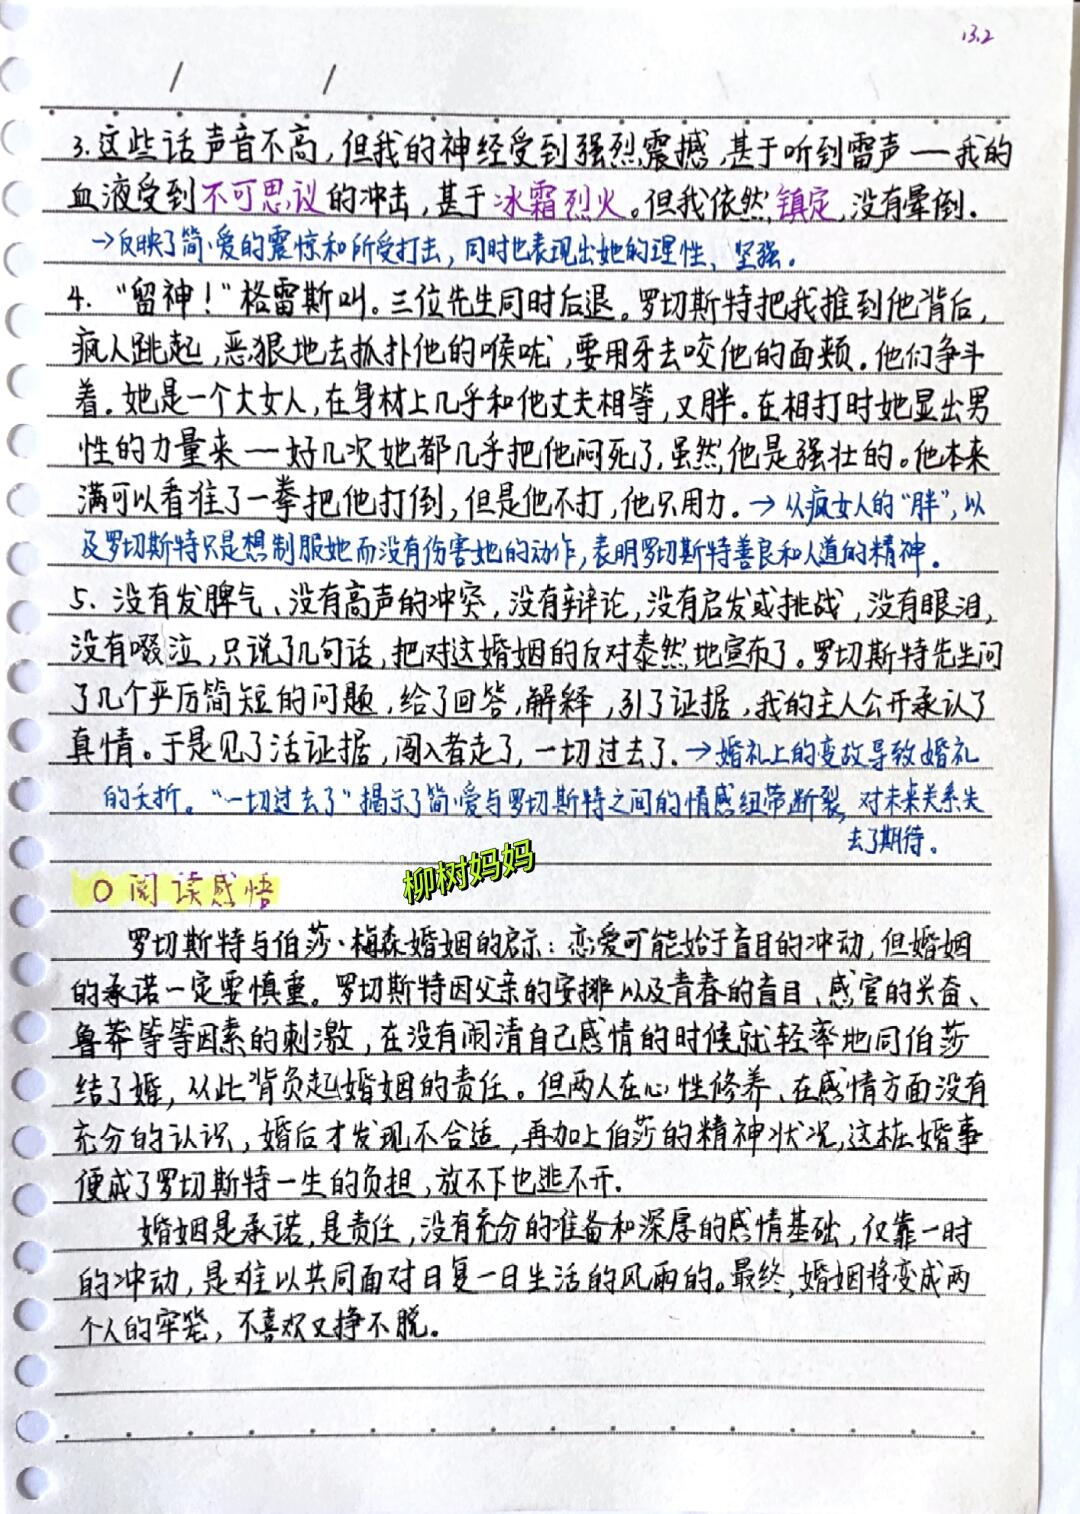 13.2
3.这些话声音不高,但我的神经受到强烈震撼,甚于听到雷声——我的
血液受到不可思议的冲击,甚于冰霜烈火。但我依然镇定,没有晕倒.
→反映了简·爱的震惊和所受打击,同时也表现出她的理性、坚强。
4. “留神!”格雷斯叫。三位先生同时后退。罗切斯特把我推到他背后,
疯人跳起,恶狠地去抓扑他的喉咙,要用牙去咬他的面颊。他们争斗
着。她是一个大女人,在身材上几乎和他丈夫相等,又胖。在相打时她显出男
性的力量来——好几次她都几乎把他闷死了,虽然他是强壮的。他本来
满可以看准了一拳把他打倒,但是他不打,他只用力.→从疯女人的“胖”,以
及罗切斯特只是想制服她而没有伤害她的动作,表明罗切斯特善良和人道的精神.
5、没有发脾气、没有高声的冲突,没有辩论,没有启发或挑战,没有眼泪,
没有啜泣,只说了几句话,把对这婚姻的反对泰然地宣布了。罗切斯特先生问
了几个严厉简短的问题,给了回答,解释,引了证据,我的主人公开承认了
真情。于是见了活证据,闯入者走了,一切过去了.→婚礼上的变故导致婚礼
的夭折。“一切过去了”揭示了简·爱与罗切斯特之间的情感纽带断裂,对未来关系失
去了期待。
柳树妈妈
O 阅读感悟
罗切斯特与伯莎·梅森婚姻的启示:恋爱可能始于盲目的冲动,但婚姻
的承诺一定要慎重。罗切斯特因父亲的安排以及青春的盲目、感官的兴奋、
鲁莽等等因素的刺激,在没有闹清自己感情的时候就轻率地同伯莎
结了婚,从此背负起婚姻的责任。但两人在心性修养、在感情方面没有
充分的认识,婚后才发现不合适,再加上伯莎的精神状况,这桩婚事
便成了罗切斯特一生的负担,放不下也逃不开.
婚姻是承诺,是责任,没有充分的准备和深厚的感情基础,仅靠一时
的冲动,是难以共同面对日复一日生活的风雨的。最终,婚姻将变成两
个人的牢笼,不喜欢又挣不脱。